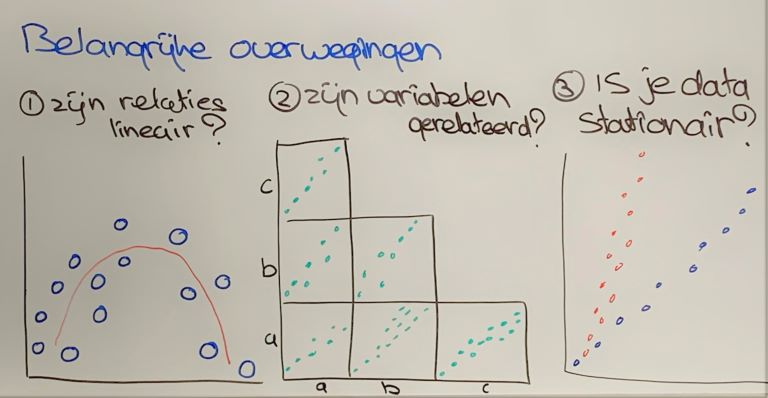 Belangrijke overwegingen
① zijn relaties
lineair?
② zijn variabelen
gerelateerd?
③ Is je data
stationair?
c
b
a
a b c